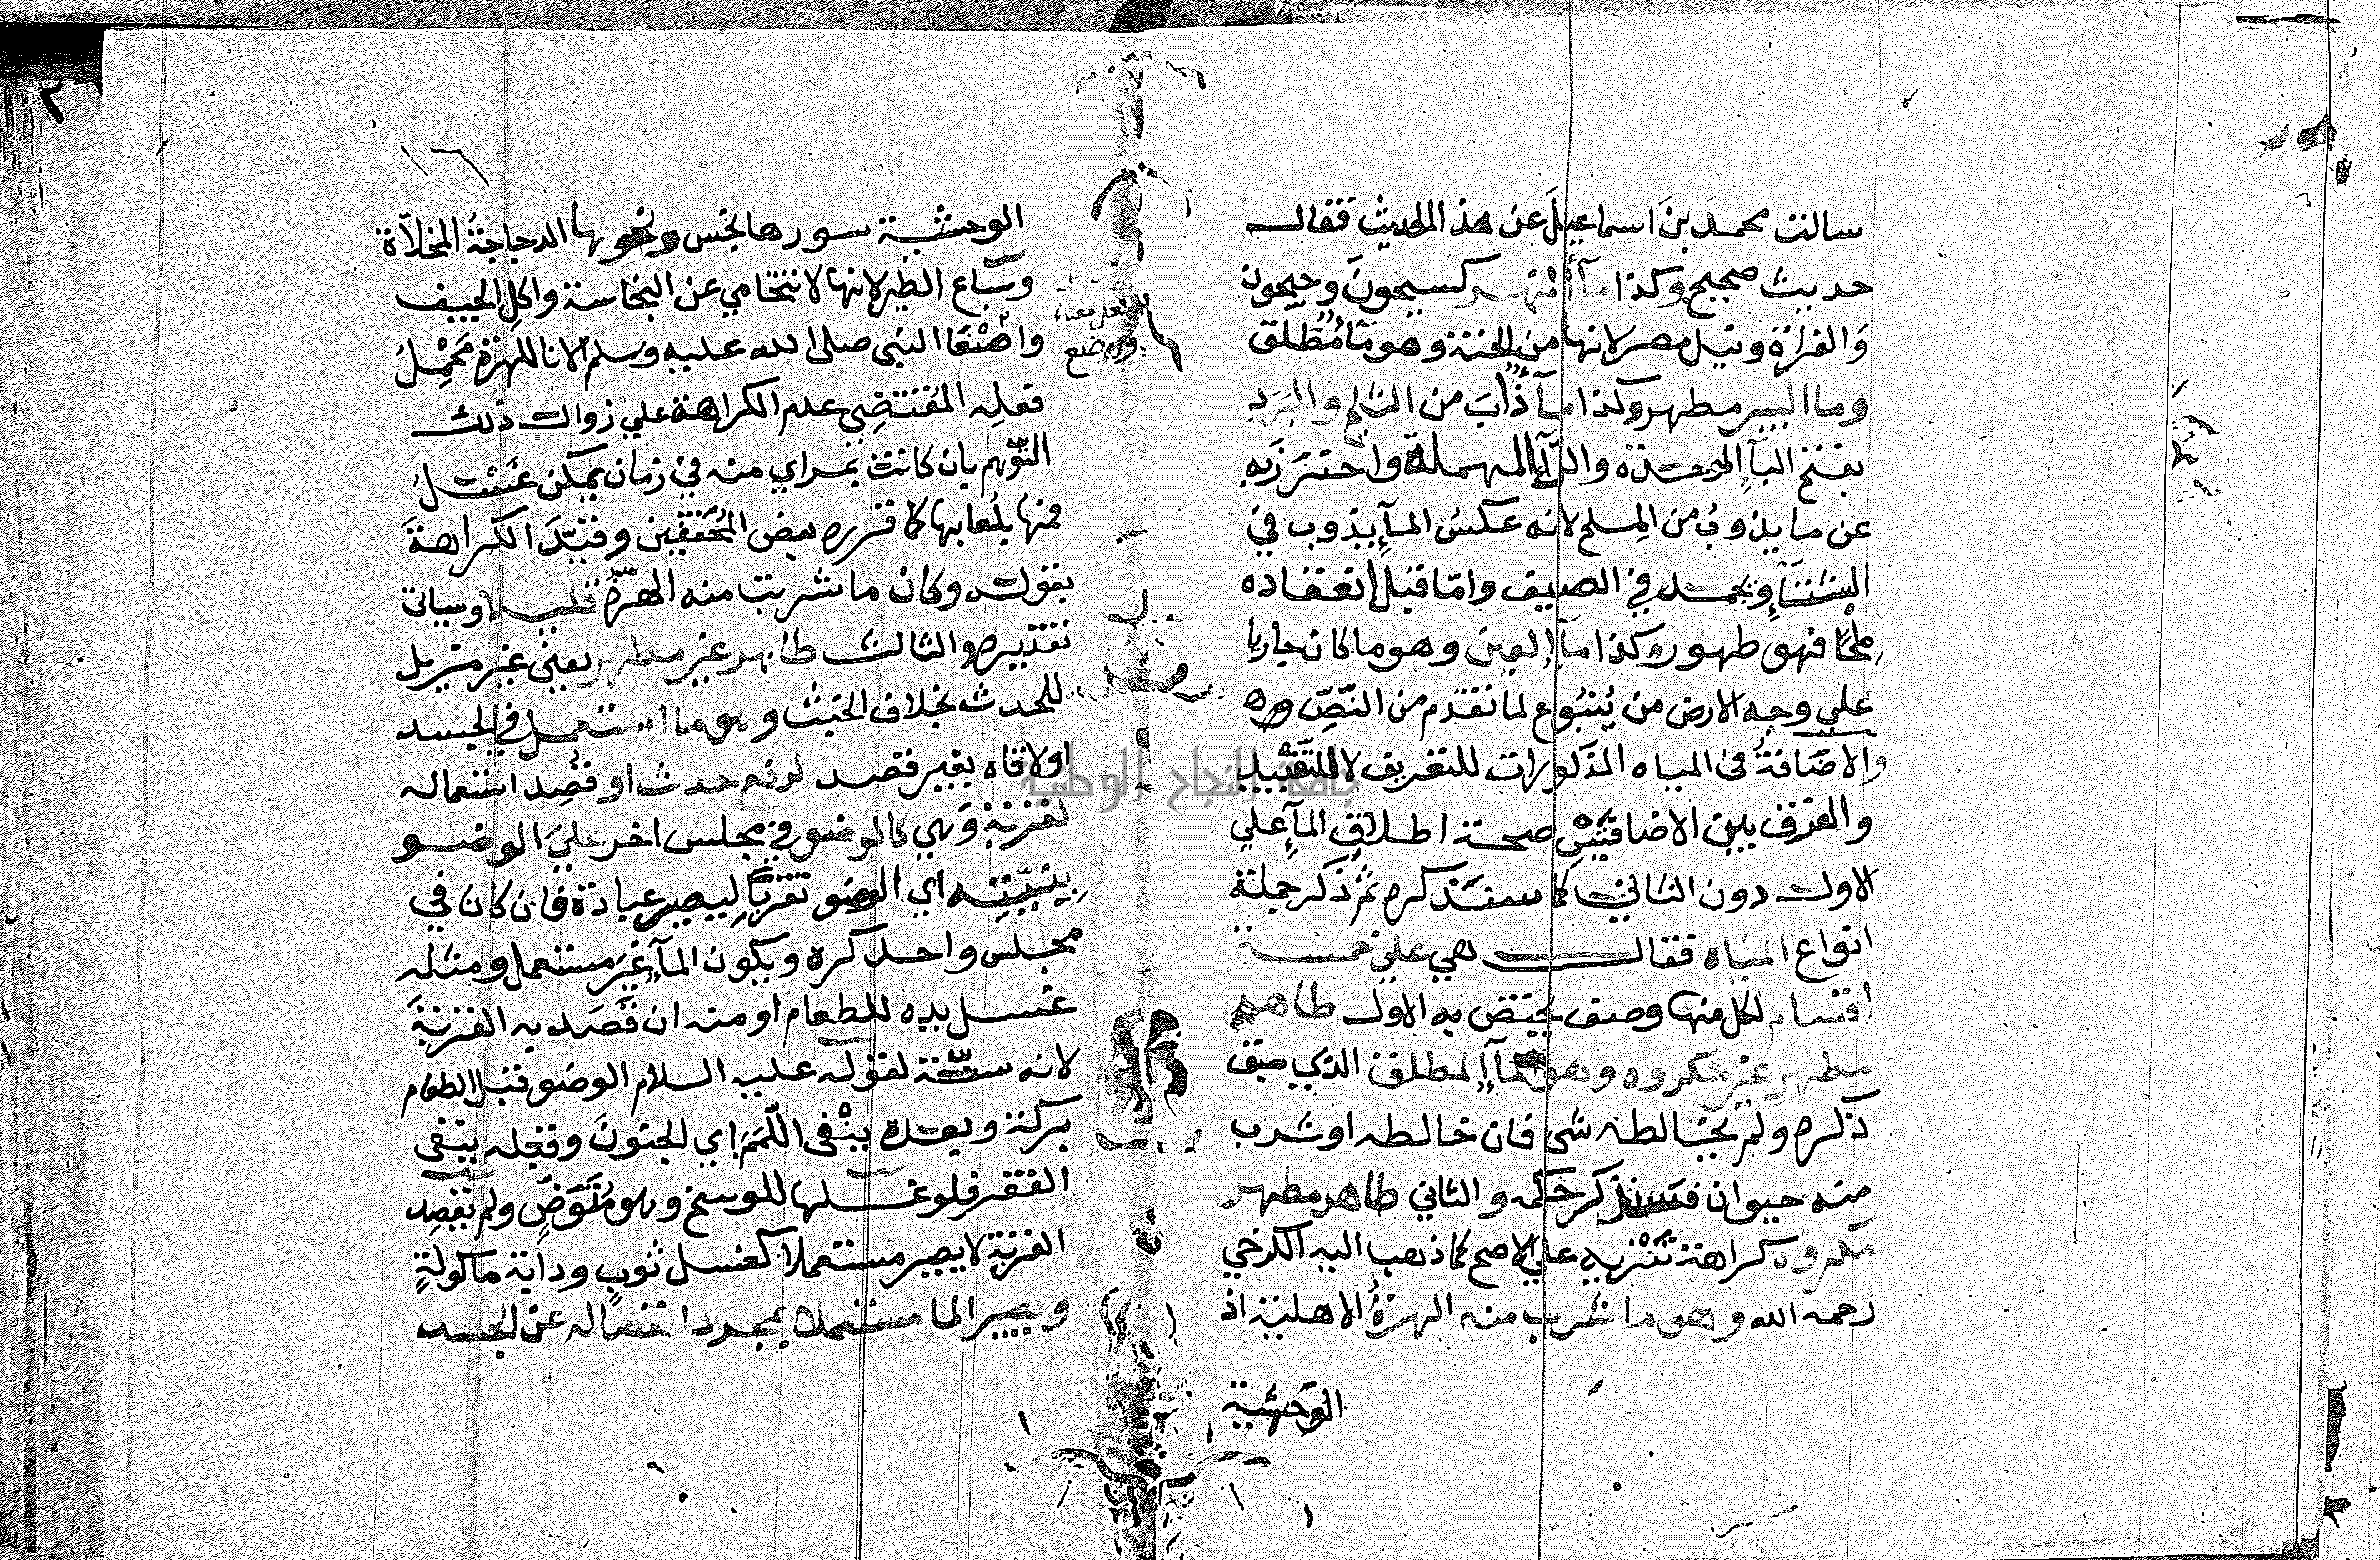 سالت محمدَ بنَ اسماعيلَ عن هذا الحديث فقال
حديث صحيح وكذا مآء النهر كسيحونَ وجيحون
وَالفراة ونيل مصر لانها من الجنة وهو مآء مُطلق
وما البير مطهر وكذا مآ ذُابَ من الثلج والبَرَد
بفتح البآء الموحدة والرآء المهملة واحترَزَ به
عن ما يذوبُ من المِلح لانه عكسُ المآءِ يذوب في
الشتآءِ ويجمد في الصيف وامّا قبلَ انعقاده
مِلحًا فهو طهور وكذا مآء العين وهو ما كان جاريا
علي وجه الارض من يُنبُوع لما تقدم من النَّصِّ
والاضافةُ في المياه المذكورات للتعريف لا للتَّقْييد
والفرق بين الاضافتَيْنِ صحة اطلاق المآءِ علي
الاول دون الثاني كما سنذكره ثُمَّ ذكر جملة
انواع المياه فقال هي علي خمسة
اقسام لكل منها وصف يختص به الاول طاهر
مطهر غير مكروه وهو المآء المطلق الذي سبق
ذكره ولم يُخالطه شي فان خالطه او شرب
منه حيوان فسنذكر حكمه والثاني طاهر مطهر
مكروه كراهة تَنْزيه علي الاصح كما ذهب اليه الكرخي
رحمه الله وهو ما شرب منه الهرةُ الاهلية اذ
الوحشية
١٦
الوحشية سورها نجس ونحوها الدجاجةُ المخلاّة
وسباع الطير لانها لا تتحامي عن النجاسة واكل الجيف
واصْغَا النبي صلى الله عليه وسلم الانا للهرة مَحْمِلُ
فعلِه المُقتضِي عدم الكراهة علي زوال ذلك
التوهم بان كانت بمراي منه في زمان يمكن غَسْلُ
فمها بلُعابها كما قرره بعض المُحققين وقيَّدَ الكراهةَ
بقوله وكان ما شربت منه الهرّةُ قليلا وسياتي
تقديره والثالث طاهر غير مطهر يعني غير مزيل
للحدث بخلاف الخبث وهو ما استعمل في الجسد
او لاقاه بغير قصد لرفع حدث او قُصِد استعماله
لقربة وَهي كالوضو في مجلس اخر عليَ الوضو
بِنيّتِه اي الوضو تقربًا ليصير عبادة فان كان في
مجلس واحد كره ويكون المآء غيرَ مستعمل ومثله
غسل يده للطعام او منه ان قَصَد به القربَةَ
لانه سنّة لقوله عليه السلام الوضو قبل الطعام
بركة وبعده ينْفى اللَّمَمَ اي الجنونَ وقبله ينفى
الفقر فلو غسلها للوسخ وهو مُتَوَضٍّ ولم يقصِد
القربة لا يصير مستعملا كغسل ثوبٍ ودابة ماكولةٍ
ويصير الما مستعملا بمجرد انفصاله عن الجسد
جامعة النجاح الوطنية